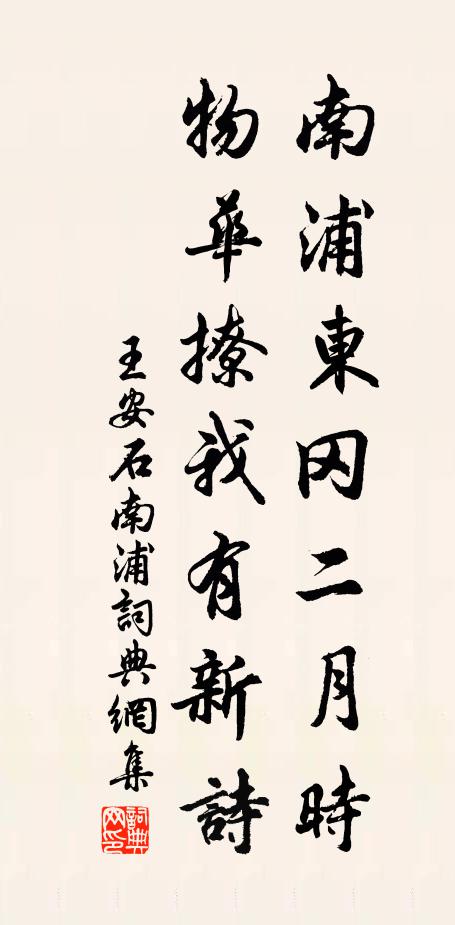 南浦東冈二月時
物華撩我有新詩
王安石南浦詞典網集
詞典网印